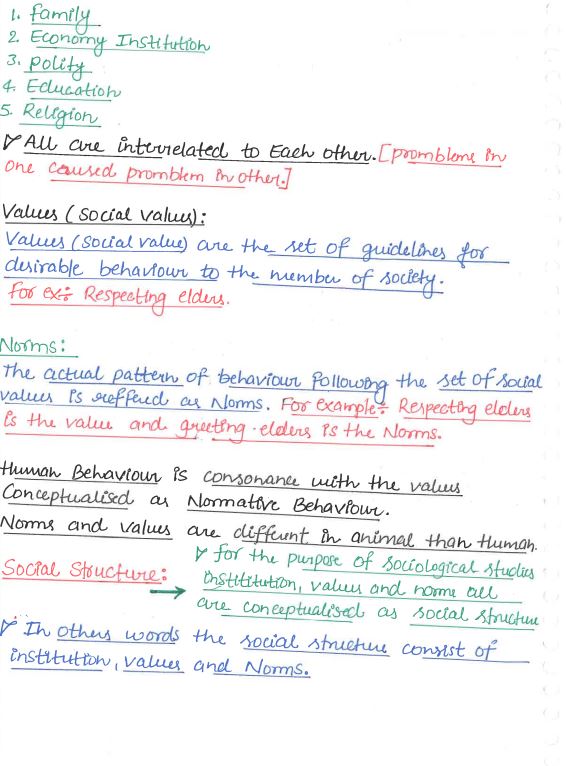 1. Family
2. Economy Institution
3. Polity
4. Education
5. Religion
All are interrelated to Each other. [promblems in
one caused promblem in other.]
Values (social values):
Values (social value) are the set of guidelines for
desirable behaviour to the member of society.
For ex:- Respecting elders.
Norms:
The actual pattern of behaviour following the set of social
values is reffered as Norms. For example:- Respecting elders
is the value and greeting elders is the Norms.
Human Behaviour is consonance with the values
Conceptualised as Normative Behaviour.
Norms and values are different in animal than Human.
Social Structure: → for the purpose of sociological studies
instititution, values and norms all
are conceptualised as social structure
In others words the social structure consist of
institution, values and Norms.